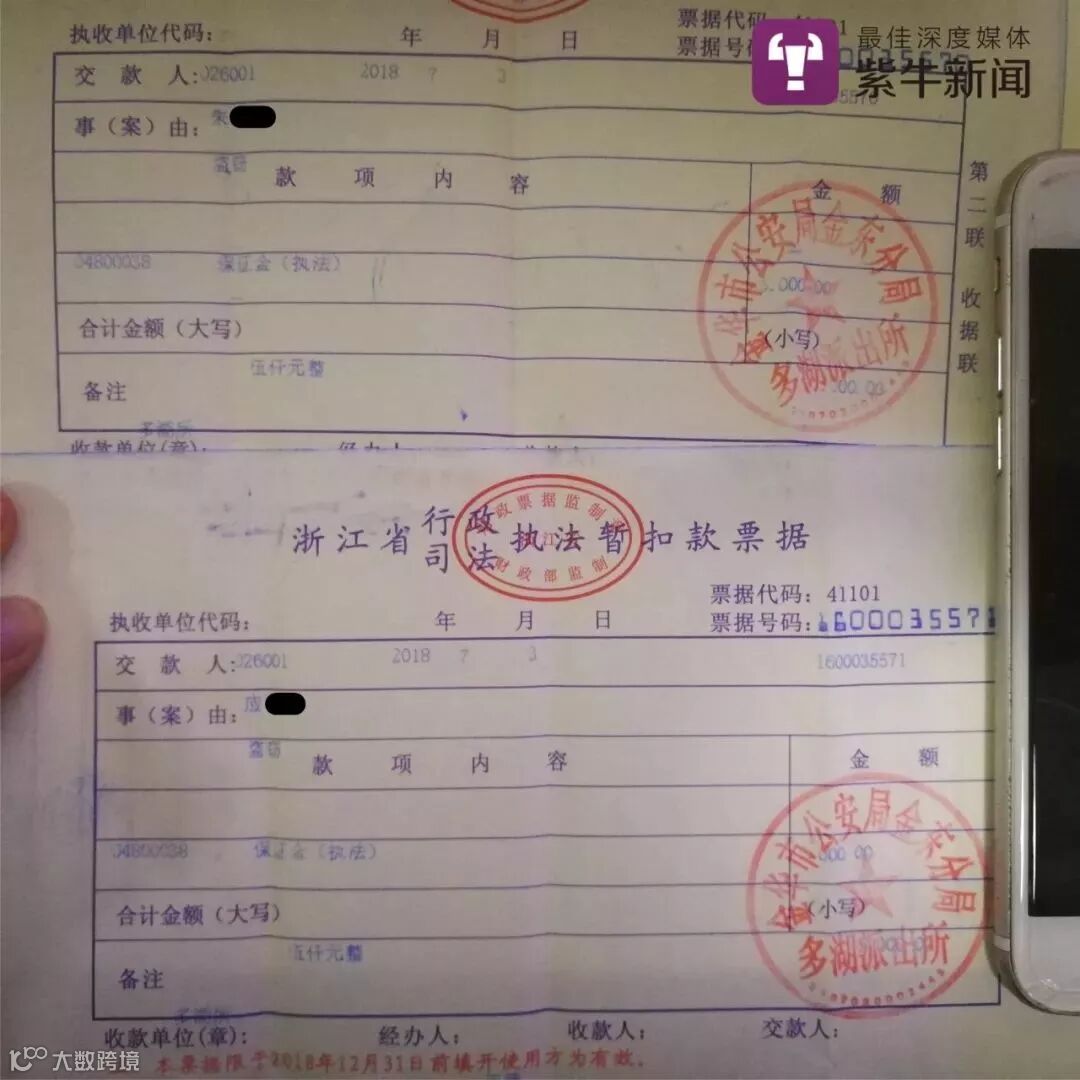 执收单位代码： 年 月 日
票据代码
票据号码
最佳深度媒体
紫牛新闻
交 款 人：026001 2018 7 3
事（案）由：朱
盗窃
款 项 内 容 金 额
第二联 收据联
04800038 保证金（执法） 000.00
合计金额（大写） （小写）
伍仟元整
备注
多湖所
金华市公安局金东分局
多湖派出所
收款单位(章)： 经办人
浙江省行政司法执法暂扣款票据
财政部监制
票据代码：41101
执收单位代码： 年 月 日 票据号码：1600035571
交 款 人：026001 2018 7 3 1600035571
事（案）由：应
盗窃
款 项 内 容 金 额
04800038 保证金（执法） 000.00
合计金额（大写） （小写）
伍仟元整
备注
金华市公安局金东分局
多湖派出所
多湖所
收款单位(章)： 经办人： 收款人： 交款人：
本票据限于2018年12月31日前填开使用方为有效。
大数跨境